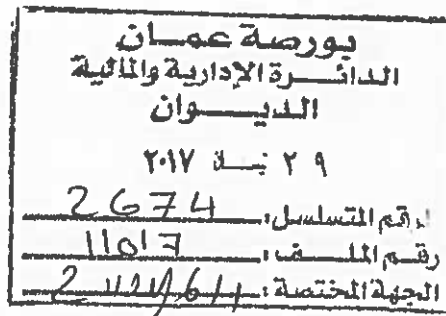 بورصة عمان
الدائرة الإدارية والمالية
الديوان
٢٩ ٢٠١٧
الرقم المتسلسل: 2674
رقم الملف:
الجهة المختصة: